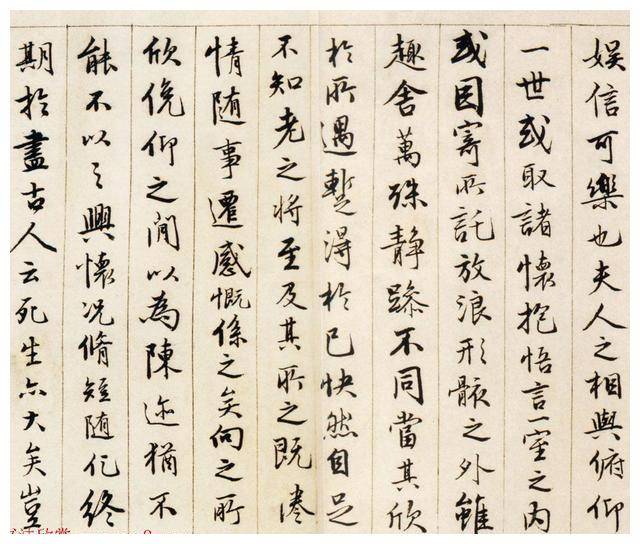 娛信可樂也夫人之相與俯仰
一世或取諸懷抱悟言一室之内
或因寄所託放浪形骸之外雖
趣舍萬殊静躁不同當其欣
於所遇蹔得於己快然自足
不知老之將至及其所之既惓
情隨事遷感慨係之矣向之所
欣俛仰之間以為陳迹猶不
能不以之興懷况脩短隨化終
期於盡古人云死生亦大矣豈